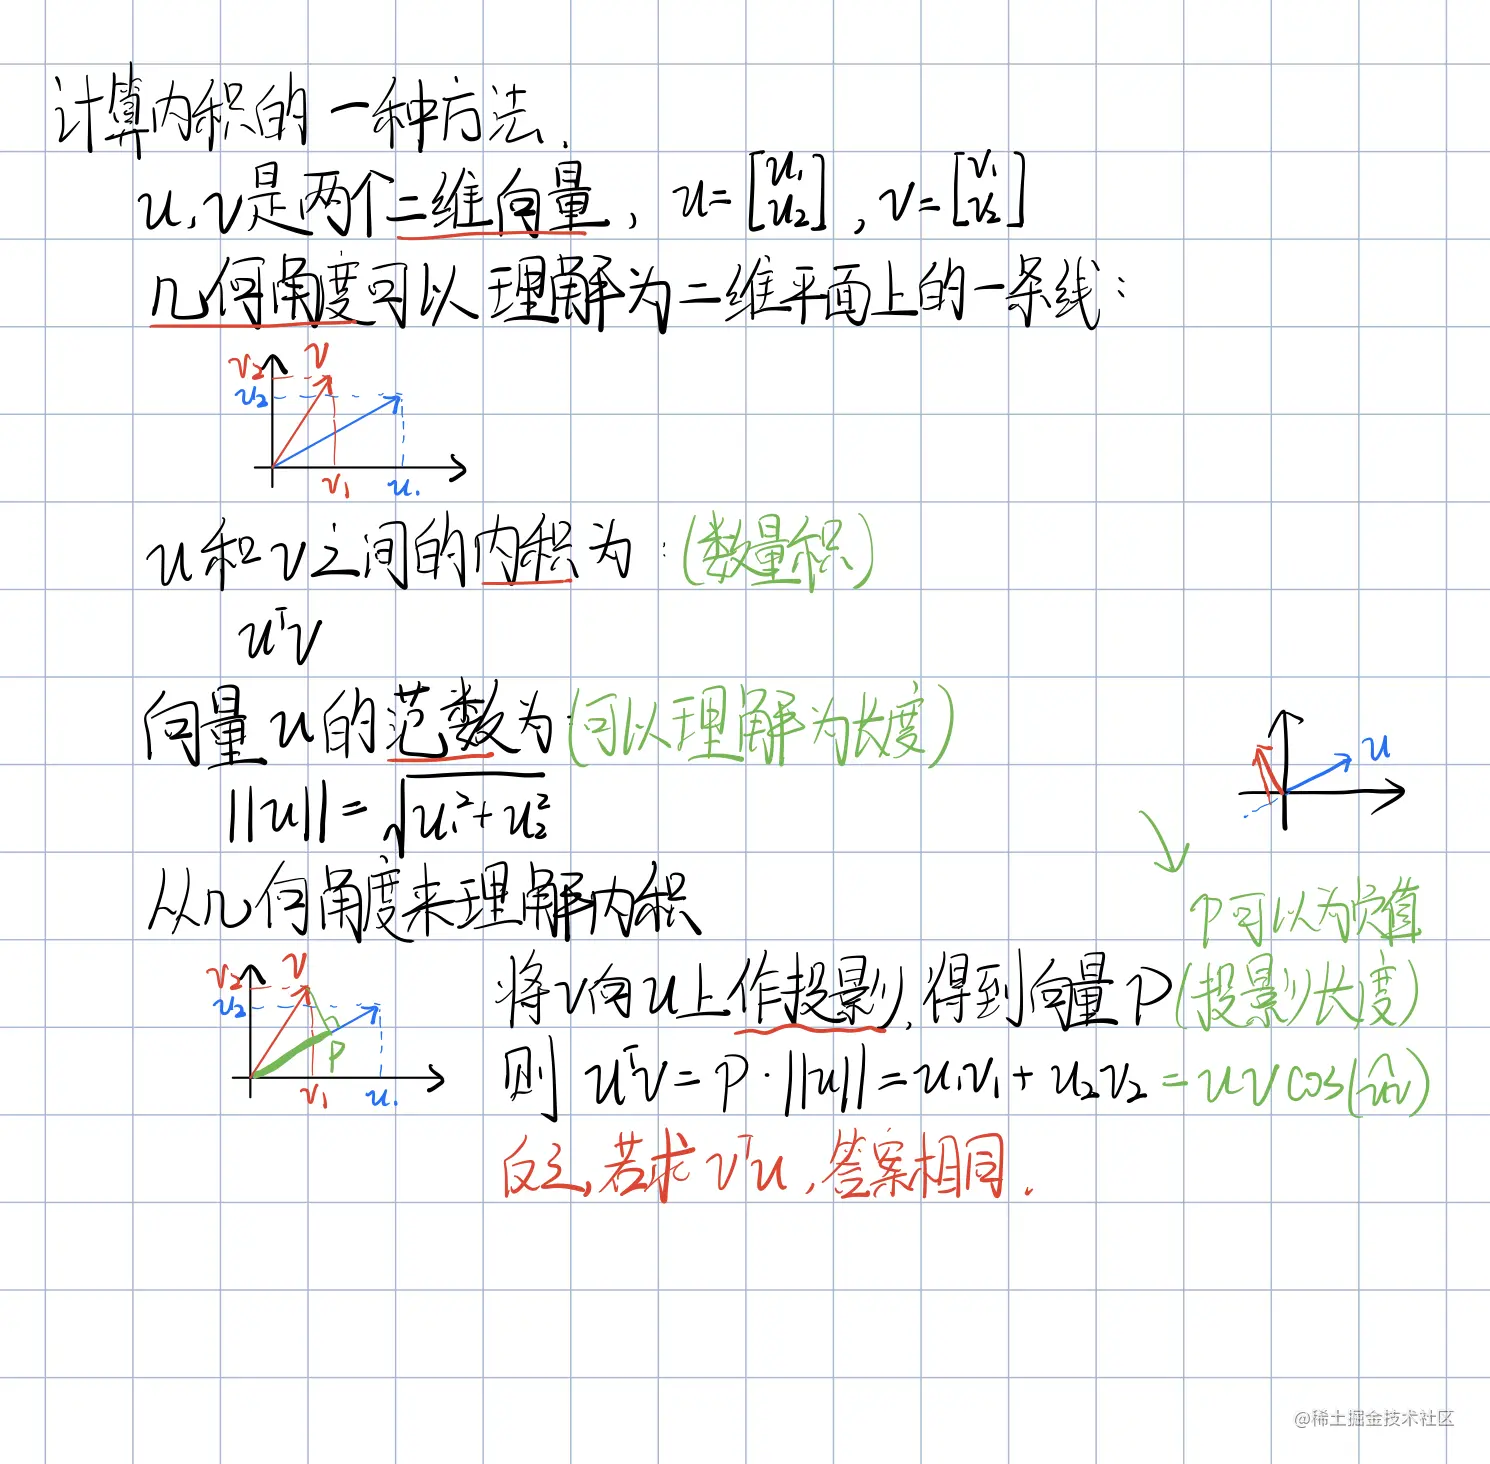 计算内积的一种方法.
u,v是两个二维向量, u=[u₁ u₂], v=[v₁ v₂]
几何角度可以理解为二维平面上的一条线:
v₂ v
u₂
v₁ u₁
u和v之间的内积为:(数量积)
uᵀv
向量u的范数为:(可以理解为长度)
||u||=√(u₁²+u₂²)
u
从几何角度来理解内积
p可以为负值
v₂ v
u₂
p
v₁ u₁
将v向u上作投影,得到向量p(投影长度)
则 uᵀv=p·||u||=u₁v₁+u₂v₂=uvcos(uv)
反之,若求vᵀu,答案相同.
@稀土掘金技术社区